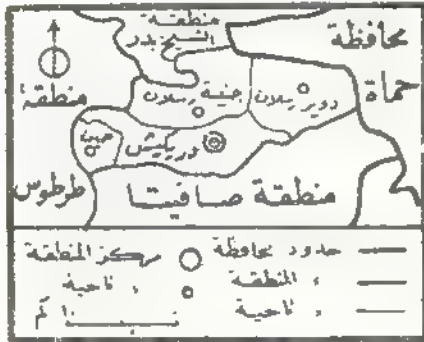 منطقة
الشيخ بدر
محافظة
حماة
منطقة
طرطوس
جنينة رسلان
دوير رسلان
دريكيش
منطقة صافيتا
حدود محافظة
، المنطقة
، ناحية
مركز المنطقة
، ناحية